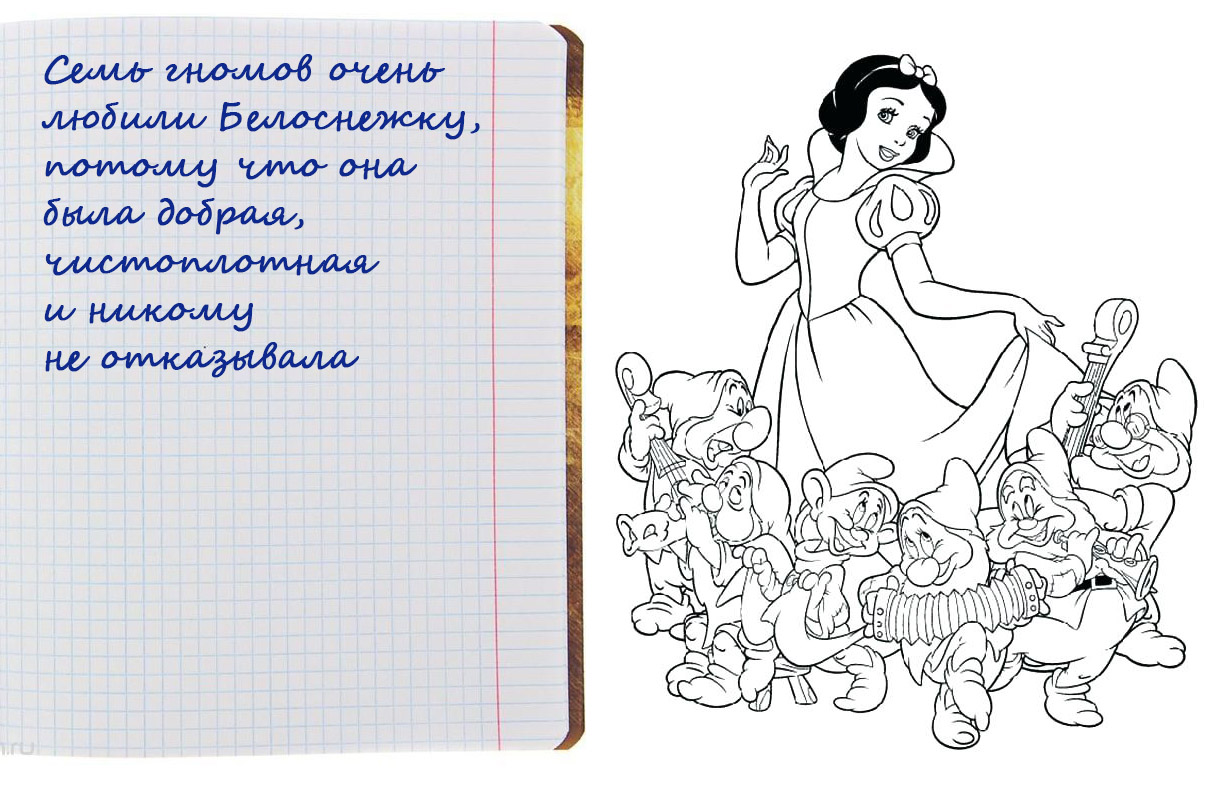 Семь гномов очень
любили Белоснежку,
потому что она
была добрая,
чистоплотная
и никому
не отказывала